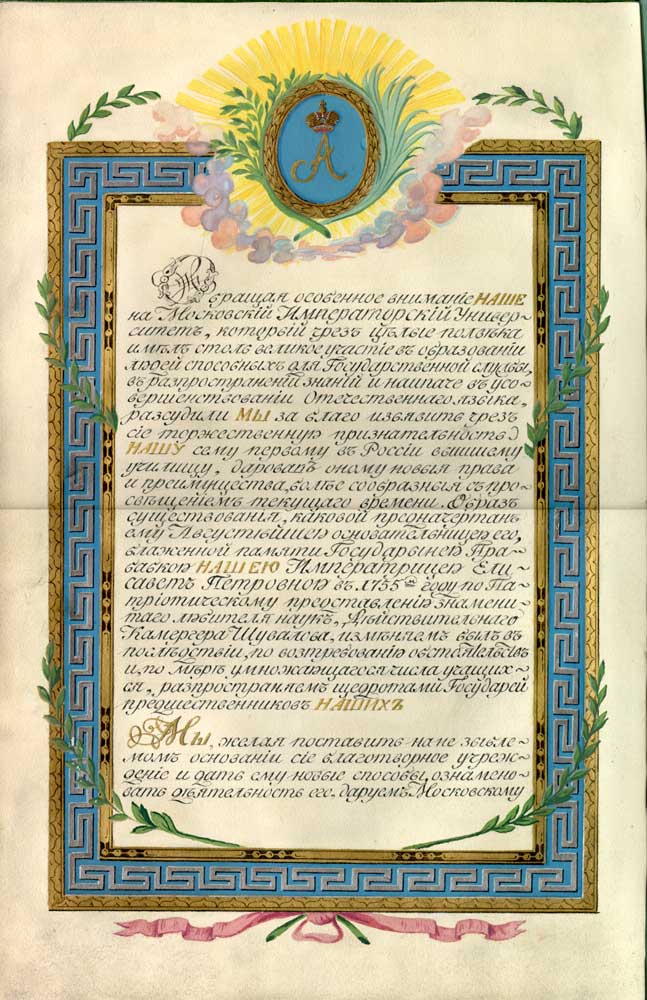 А
Обращая особенное вниманіе НАШЕ
на Московскій Императорскій Универ-
ситетъ, который чрезъ цѣлые полвѣка
имѣлъ столь великое участіе въ образованіи
людей способныхъ для Государственной службы,
въ разпространеніи знаній и наипаче въ усо-
вершенствованіи Отечественнаго языка,
разсудили МЫ за благо изъявить чрезъ
сіе торжественную признательность
НАШУ сему первому въ Россіи вышнему
училищу, даровавъ оному новыя права
и преимущества, болѣе сообразныя съ про-
свѣщеніемъ текущаго времени. Образъ
существованія, каковой предначертанъ
ему Августѣйшею основательницею его,
блаженной памяти Государынею Пра-
бабкою НАШЕЮ Императрицею Ели-
саветъ Петровною въ 1755мъ году по Па-
тріотическому представленію знамени-
таго любителя наукъ, Дѣйствительнаго
Камергера Шувалова, измѣняемъ былъ въ
послѣдствіи, по возтребованію обстоятельствъ
и, по мѣрѣ умножающагося числа учащих-
ся, разпространяемъ щедротами Государей
предшественниковъ НАШИХЪ
МЫ, желая поставить на не зыбле-
момъ основаніи сіе благотворное учреж-
деніе и дать ему новые способы, ознамено-
вать дѣятельность его, даруемъ Московскому